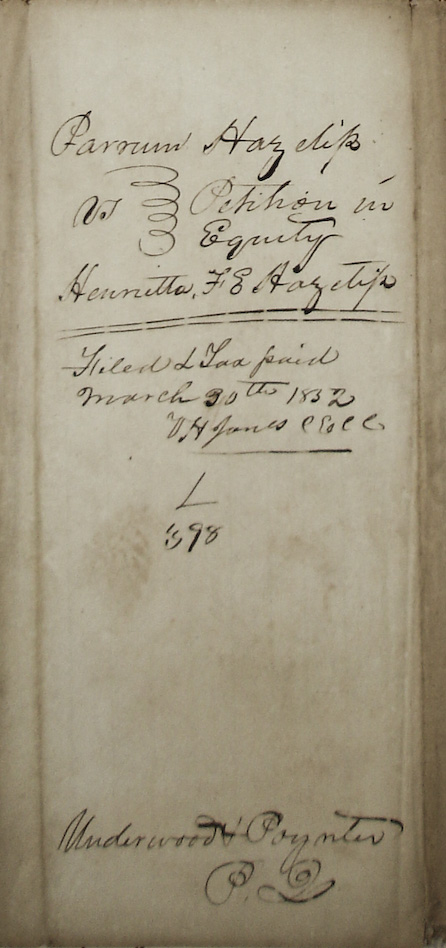 Parrum Hazelip
vs Petition in
Equity
Henrietta, F E Hazelip
Filed & Tax paid
March 30th 1852
Jones
L
598
Underwood & Poynter
P. Q